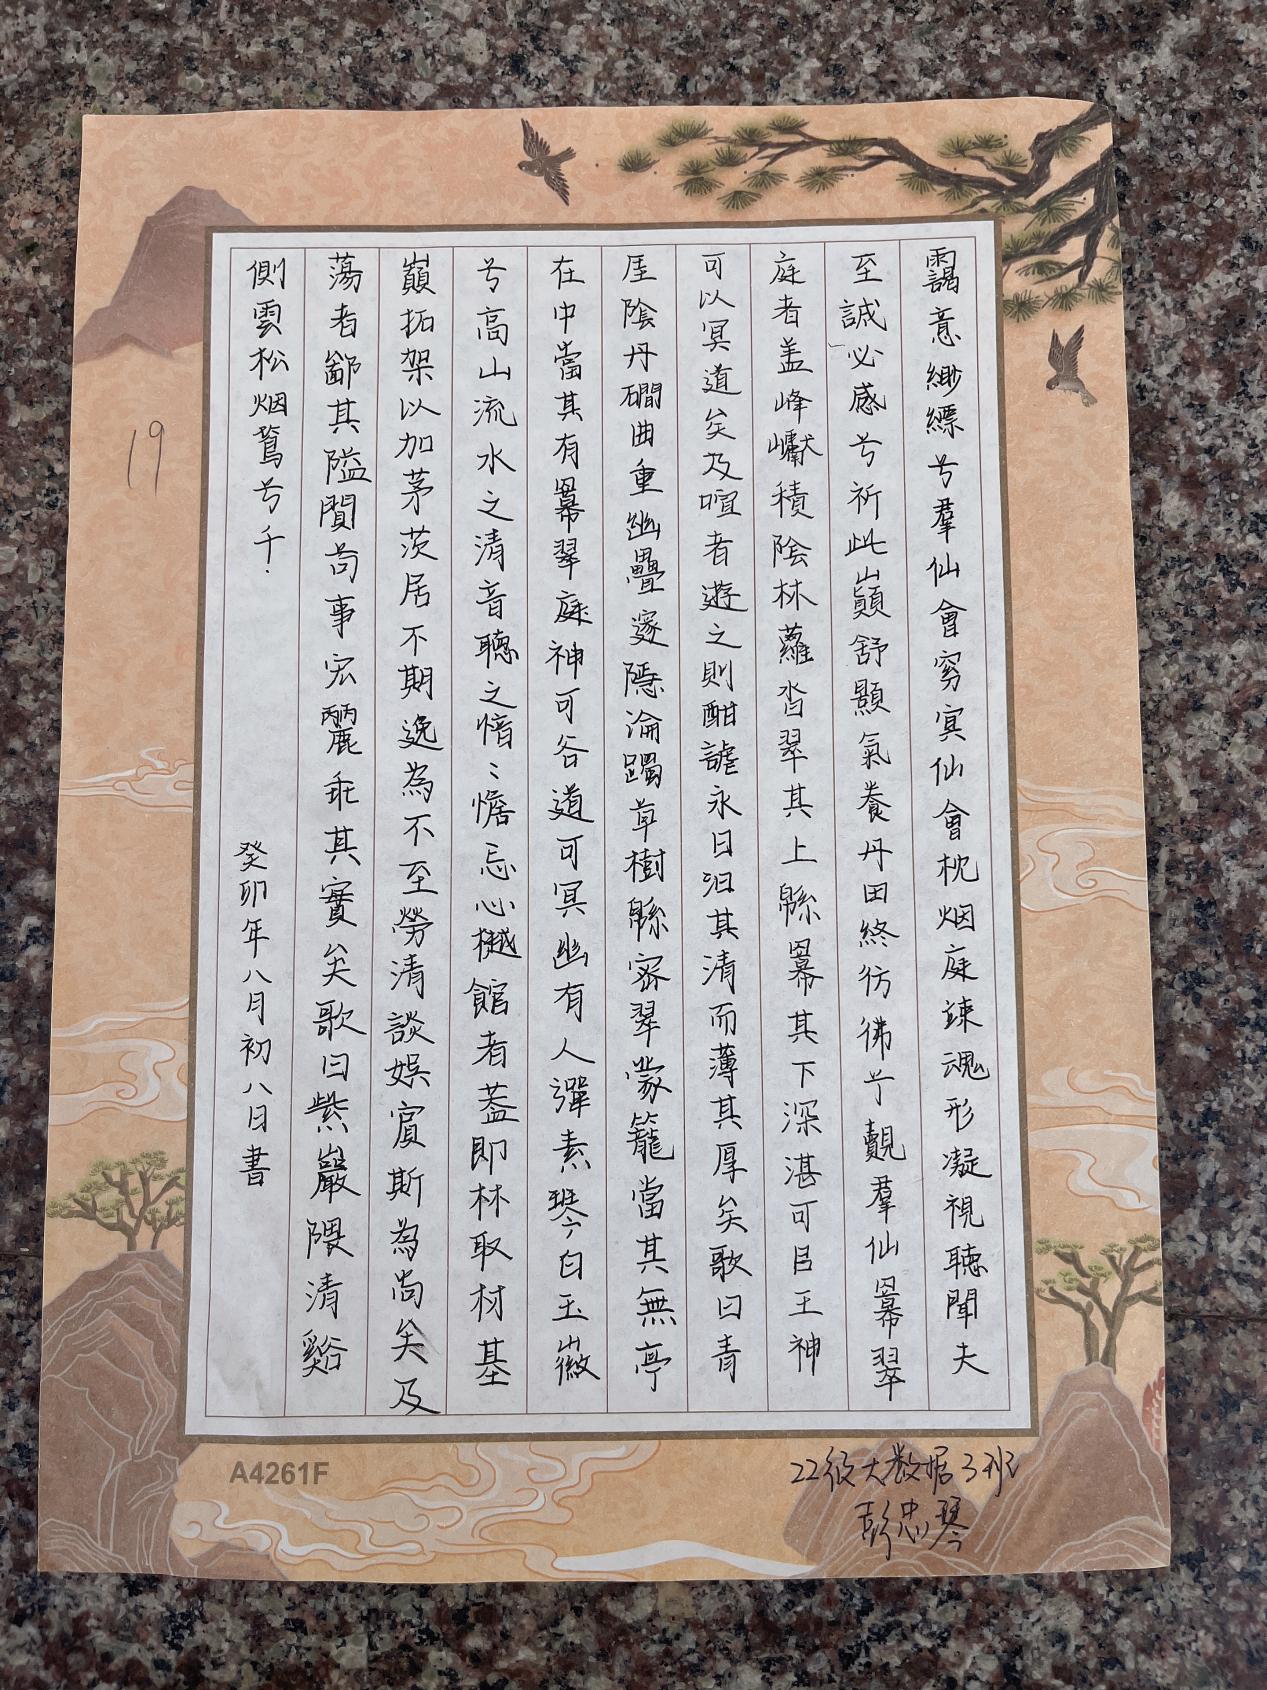 靄意縹緲兮羣仙會窈冥仙會枕烟庭竦魂形凝視聽聞夫
至誠必感兮祈此巔舒顥氣養丹田終彷彿兮覿羣仙冪翠
庭者盖峰巘積陰林蘿沓翠其上緜冪其下深湛可㠯王神
可以冥道矣及喧者遊之則酣謔永日汩其清而薄其厚矣歌曰青
崖陰丹磵曲重幽疊邃隱淪躅草樹緜密翠蒙籠當其無亭
在中當其有冪翠庭神可谷道可冥幽有人彈素琴白玉徽
兮高山流水之清音聽之愔〻憺忘心樾館者蓋即林取材基
巔拓架以加茅茨居不期逸為不至勞清談娛賓斯為尚矣及
蕩者鄙其隘閴苟事宏麗乖其實矣歌曰紫巖隈清谿
側雲松烟蔦兮千.
癸卯年八月初八日書
19
A4261F
22级大数据3班
彭忠琴